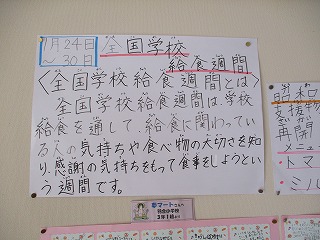 1月24日
～30日
全国学校
給食週間
〈全国学校給食週間とは〉
全国学校給食週間は、学校
給食を通して、給食に関わってい
る人の気持ちや食べ物の大切さを知
り、感謝の気持ちをもって食事をしようとい
う週間です。
昭和
支援物
が
再開
メニュ
トマ
ミル
3年1組